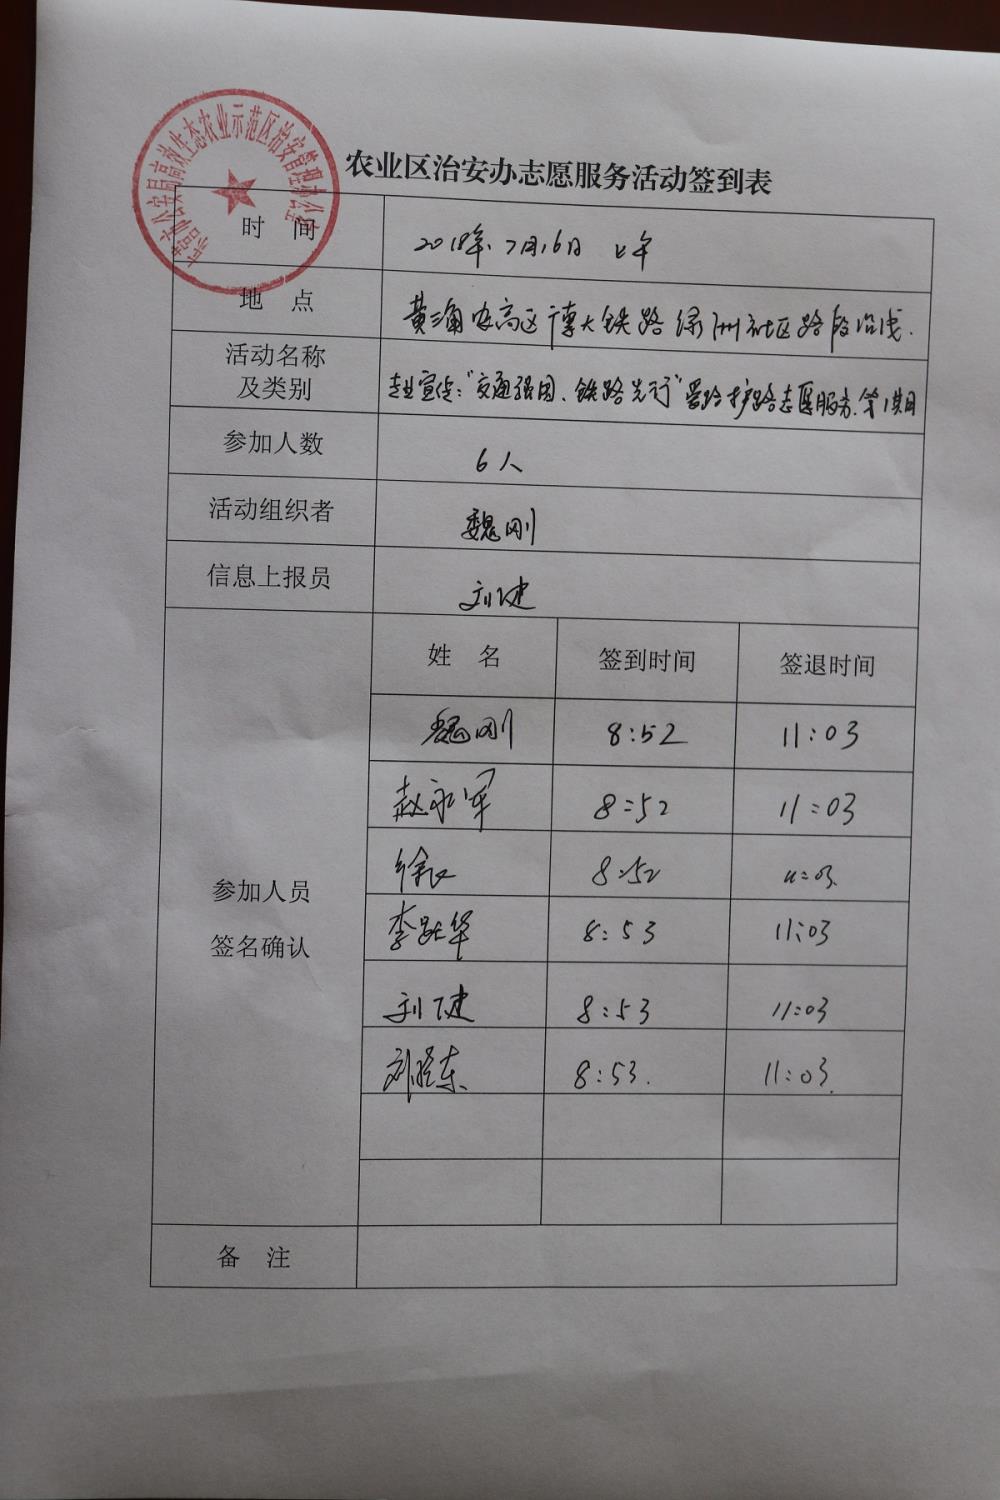 农业区治安办志愿服务活动签到表
时 间 2018年7月16日 上午
地 点 黄三角农高区德大铁路绿洲社区路段沿线.
活动名称
及类别
宣传:"交通强国、铁路先行" 护路志愿服务.第1期
参加人数 6人
活动组织者 魏刚
信息上报员 刘健
参加人员
签名确认
姓 名 签到时间 签退时间
魏刚 8:52 11:03
赵永军 8:52 11:03
徐 8:52 11:03
李跃华 8:53 11:03
刘健 8:53 11:03
刘晓东 8:53. 11:03.
备 注
市公安局高效生态农业示范区治安管理办公室